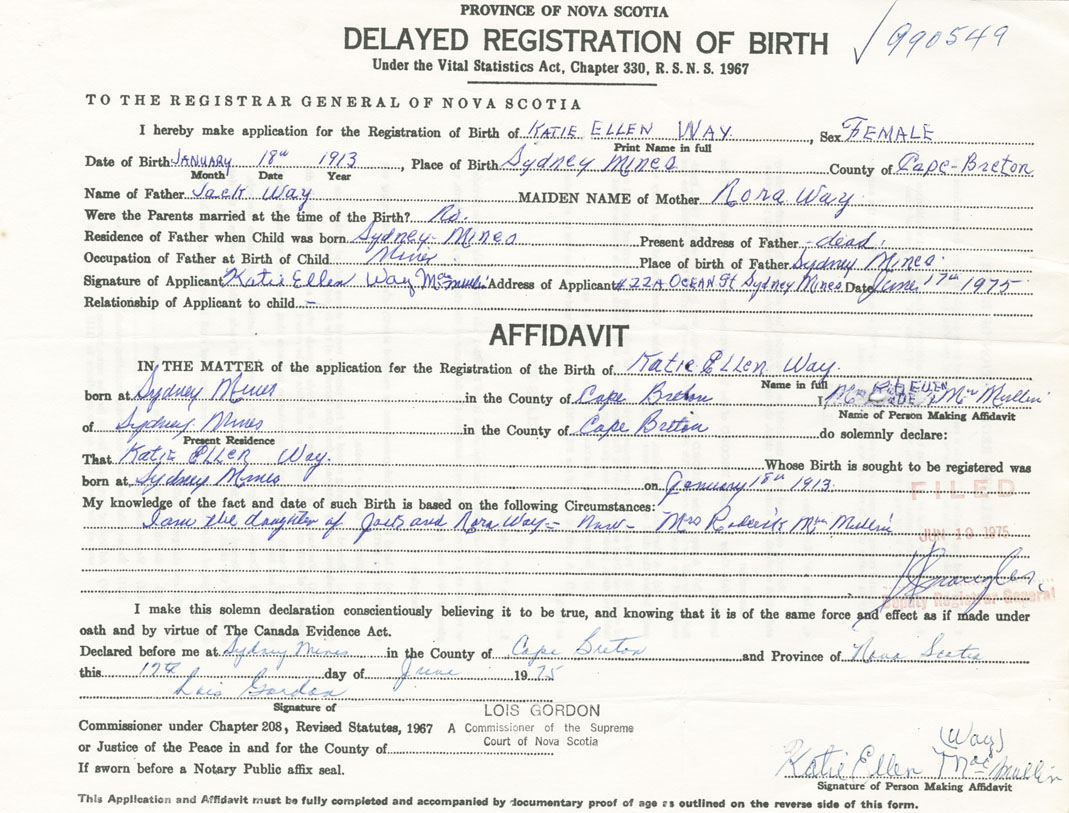 PROVINCE OF NOVA SCOTIA
990549
DELAYED REGISTRATION OF BIRTH
Under the Vital Statistics Act, Chapter 330, R. S. N. S. 1967
TO THE REGISTRAR GENERAL OF NOVA SCOTIA
I hereby make application for the Registration of Birth of KATIE ELLEN WAY, Sex FEMALE
Print Name in full
Date of Birth JANUARY 18th 1913, Place of Birth Sydney Mines County of Cape-Breton
Month Date Year
Name of Father Jack Way MAIDEN NAME of Mother Nora Way
Were the Parents married at the time of the Birth? No.
Residence of Father when Child was born Sydney-Mines Present address of Father -dead.
Occupation of Father at Birth of Child Miner Place of birth of Father Sydney Mines.
Signature of Applicant Katie Ellen Way MacMullin Address of Applicant #22A OCEAN St Sydney Mines Date June 17th 1975
Relationship of Applicant to child -
AFFIDAVIT
IN THE MATTER of the application for the Registration of the Birth of Katie ELLEN Way.
Name in full
born at Sydney Mines in the County of Cape Breton I, ELLEN MacMullin
Name of Person Making Affidavit
of Sydney Mines in the County of Cape Breton do solemnly declare:
Present Residence
That Katie ELLEN Way. Whose Birth is sought to be registered was
born at Sydney Mines on January 18th 1913.
My knowledge of the fact and date of such Birth is based on the following Circumstances:
I am the daughter of Jack and Nora Way - now - Mrs Roderick MacMullin
FILED
JUN 19 1975
Deputy Registrar General
I make this solemn declaration conscientiously believing it to be true, and knowing that it is of the same force and effect as if made under
oath and by virtue of The Canada Evidence Act.
Declared before me at Sydney Mines in the County of Cape Breton and Province of Nova Scotia
this 17th day of June 1975
Lois Gordon
Signature of
LOIS GORDON
Commissioner under Chapter 208, Revised Statutes, 1967 A Commissioner of the Supreme
Court of Nova Scotia
or Justice of the Peace in and for the County of
If sworn before a Notary Public affix seal.
(Way)
Katie Ellen MacMullin
Signature of Person Making Affidavit
This Application and Affidavit must be fully completed and accompanied by documentary proof of age as outlined on the reverse side of this form.